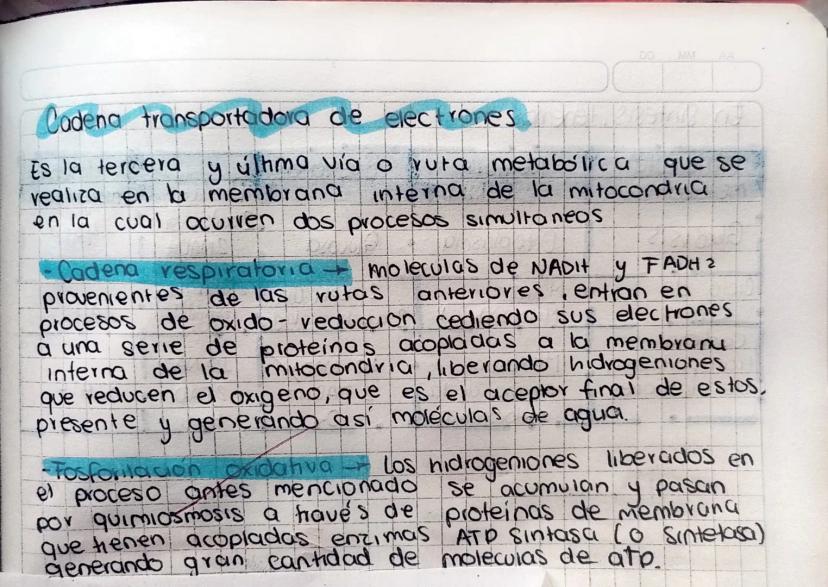 DD MM AA
Cadena transportadora de electrones
Es la tercera y última vía o ruta metabólica que se
realiza en la membrana interna de la mitocondria
en la cual ocurren dos procesos simultaneos
-Cadena respiratoria → moleculas de NADH y FADH2
provenientes de las rutas anteriores, entran en
procesos de oxido-reduccion cediendo sus electrones
a una serie de proteínas acopladas a la membrana
interna de la mitocondria, liberando hidrogeniones
que reducen el oxigeno, que es el aceptor final de estos,
presente y generando así moléculas de agua.
-Fosforilación oxidativa → Los hidrogeniones liberados en
el proceso antes mencionado se acumulan y pasan
por quimiosmosis a través de proteínas de membrana
que tienen acopladas enzimas ATP sintasa (o sintetasa)
generando gran cantidad de moleculas de atp.